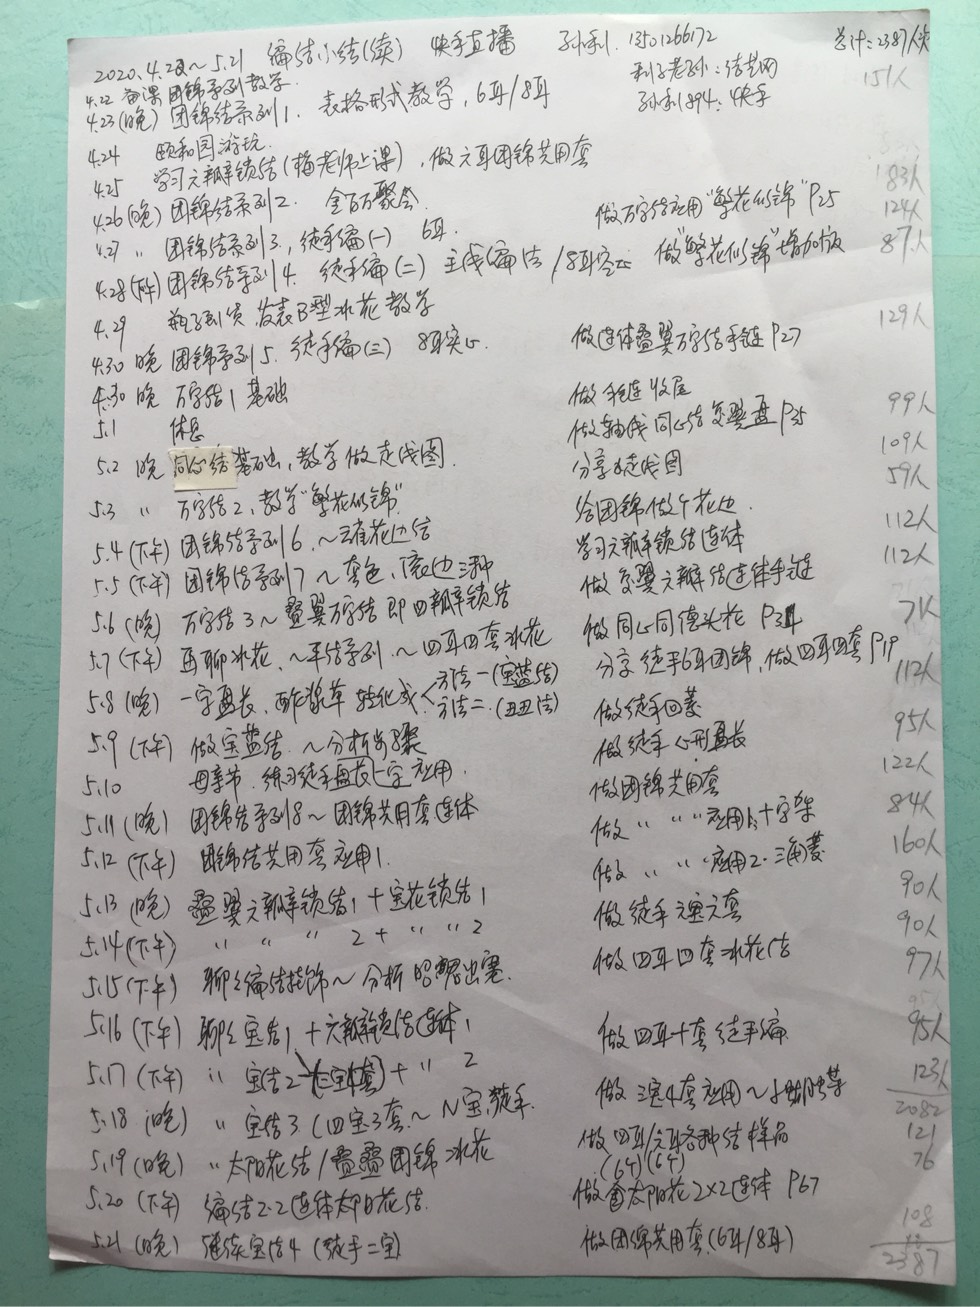 2020.4.22~5.21 编结小结(续) 快手直播 孙利.13501266172 总计:2387人次
4.22 备课 团锦系列教学. 利子老孙:结艺网 151人
4.23(晚) 团锦结系列1. 表格形式教学,6耳/8耳 孙利1894:快手
4.24 颐和园游玩.
4.25 学习六瓣锁结(梅老师上课),做六耳团锦共用套
4.26(晚) 团锦结系列2. 金百万聚会. 做万字结应用"繁花似锦"P25 183人
4.27 〃 团锦结系列3,徒手编(一) 6耳. 做"繁花似锦"增加版 124人
4.28(下午) 团锦结系列4. 徒手编(二)主线编法/8耳空心 87人
4.29 发表B型冰花教学
4.30 晚 团锦系列5. 徒手编(三) 8耳实心. 做连体叠翼万字结手链P27 129人
4.30 晚 万字结1 基础 做手链收尾
5.1 休息 做轴线同心结交翼盘P35 99人
5.2 晚 同心结基础,教学做走线图. 分享走线图 109人
5.3 〃 万字结2,教学"繁花似锦" 给团锦做个花边. 59人
5.4(下午) 团锦结系列6.~花边结 学习六瓣锁结连体 112人
5.5(下午) 团锦结系列7~套色,滚边三种 做交翼六瓣结连体手链 112人
5.6(晚) 万字结3~叠翼万字结即四瓣锁结 做同心同德头花 P34 71人
5.7(下午) 再聊冰花,~耳结系列~四耳四套冰花 分享徒手6耳团锦,做四耳四套P19 112人
5.8(晚) 一字盘长,酢浆草转化成<方法一(宝蓝结) 方法二.(丑丑法) 做徒手四菱 95人
5.9(下午) 做宝蓝结.~分析步骤 做徒手心形盘长
5.10 母亲节.练习徒手盘长一字应用. 做团锦共用套 122人
5.11(晚) 团锦结系列8~团锦共用套连体 做〃〃〃应用1.十字架 84人
5.12(下午) 团锦结共用套应用1. 做〃〃·应用2.三角菱 160人
5.13(晚) 叠翼六瓣锁结1+宝花锁结1 做徒手六宝六套 90人
5.14(下午) 〃 〃 〃 2+〃 〃2 做四耳四套冰花结 90人
5.15(下午) 聊聊编结挂饰~分析昭君出塞. 97人
5.16(下午) 聊聊宝结1+六瓣锁结连体1 做四耳十套徒手编 95人
5.17(下午) 〃 宝结2~(三宝套)+〃 2 123人
5.18(晚) 〃 宝结3(四宝3套~N宝,徒手. 做三宝4套应用~ 2082
5.19(晚) 〃太阳花结/叠叠团锦冰花 做四耳/六耳各种结样品 121
(6个)(6个) 76
5.20(下午) 编结2·2连体太阳花结. 做太阳花2×2连体 P67
5.21(晚) 继续宝结4(徒手二宝) 做团锦共用套(6耳/8耳) 108
2387